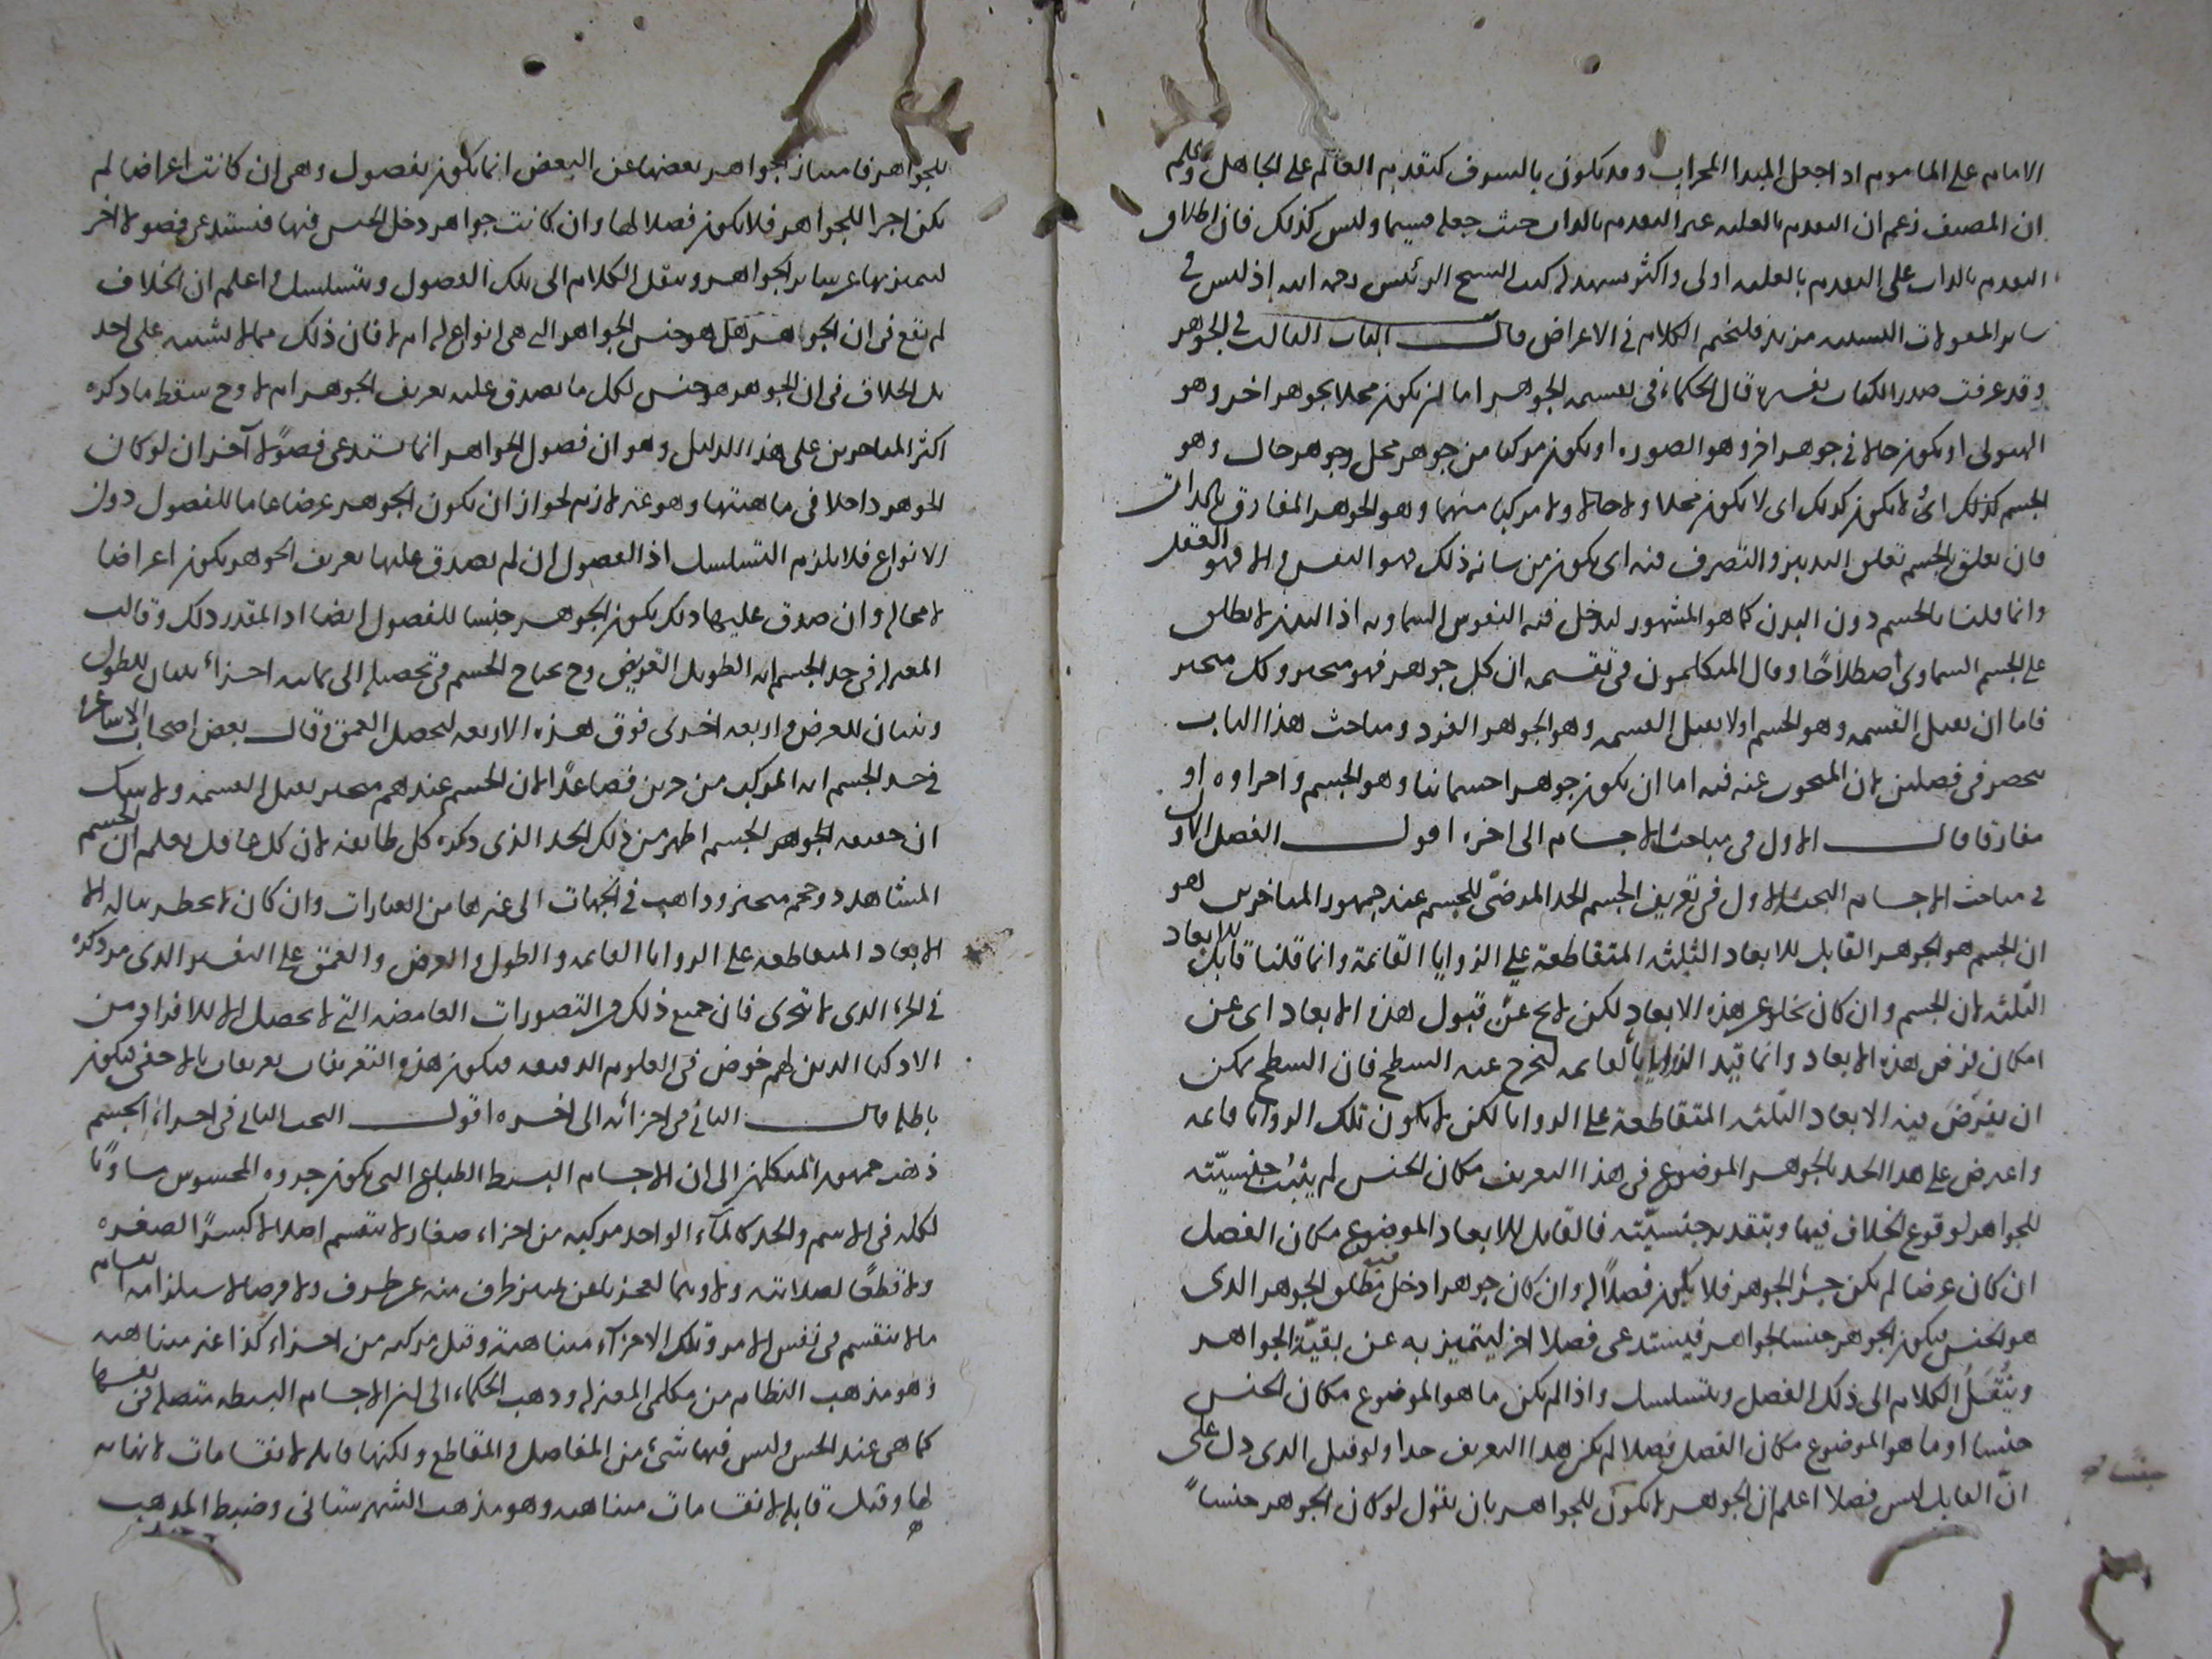 الامام على الماموم اذا جعل المبدا المحراب وقد يكون بالشرف كتقديم العالم على الجاهل واعلم
ان المصنف زعم ان التقدم بالعلية غير التقدم بالذات حيث جعله قسيما وليس كذلك فان اطلاق
التقدم بالذات على التقدم بالعلية اولى واكثر كتب الشيخ الرئيس رحمه الله اذ ليس في
ساير المقولات النسبية مزيد فلنختم الكلام في الاعراض قال الباب الثالث في الجوهر
وقد عرفت صدر الكتاب تفسيره قال الحكماء في تقسيم الجوهر اما ان يكون محلا لجوهر اخر وهو
الهيولى او يكون حالا في جوهر اخر وهو الصوره او يكون مركبا من جوهر محل وجوهر حال وهو
الجسم كذلك اى لا يكون كذلك اى لا يكون محلا ولا حالا ولا مركبا منهما وهو الجوهر المفارق بالذات
فان تعلق بالجسم تعلق التدبير والتصرف فيه اى يكون من شانه ذلك فهو النفس والا فهو العقل
وانما قلنا بالجسم دون البدن كما هو المشهور ليدخل فيه النفوس السماويه اذ البدن لا يطلق
على الجسم السماوى اصطلاحًا وقال المتكلمون في تقسيمه ان كل جوهر فهو متحيز وكل متحيز
فاما ان يقبل القسمه وهو الجسم اولا يقبل القسمه وهو الجوهر الفرد ومباحث هذا الباب
تنحصر في فصلين لان المبحوث عنه فيه اما ان يكون جوهرا جسمانيا وهو الجسم واجزاوه او
مفارقا قال الاول في مباحث الاجسام الى اخره اقول الفصل الاول
في مباحث الاجسام البحث الاول في تعريف الجسم الحد المرضىّ للجسم عند جمهور المتاخرين هو
ان الجسم هو الجوهر القابل للابعاد الثلثه المتقاطعة على الزوايا القائمة وانما قلنا قابل للابعاد
الثلثه لان الجسم وان كان يخلو عن هذه الابعاد لكن لا يخ عن قبول هذه الابعاد اى عن
امكان فرض هذه الابعاد وانما قيد الزوايا بالقايمه ليخرج عنه السطح فان السطح يمكن
ان يفرض فيه الابعاد الثلثه المتقاطعة على الزوايا لكن لا يكون تلك الزوايا قايمه
واعترض على هذا الحد بالجوهر الموضوع في هذا التعريف مكان الجنس لم يثبت جنسيّته
للجواهر لوقوع الخلاف فيها وبتقدير جنسيّته فالقابل للابعاد الموضوع مكان الفصل
ان كان عرضا لم يكن جزء الجوهر فلا يكون فصلًا له وان كان جوهرا دخل فيه مطلق الجوهر الذى
هو الجنس ليكون الجوهر جنسا للجواهر فيستدعى فصلا اخر ليتميز به عن بقيّة الجواهر
ويُنقَلُ الكلام الى ذلك الفصل ويتسلسل واذا لم يكن ما هو الموضوع مكان الجنس
جنسا او ما هو الموضوع مكان الفصل فصلا لم يكن هذا التعريف حدا ولو قيل الذى دل على
انّ القابل ليس فصلا اعلم ان الجوهر لا يكون للجواهر بان نقول لو كان الجوهر جنساً
جنسا
للجواهر فامتياز الجواهر بعضها عن البعض انما يكون بفصول وهى ان كانت اعراضا لم
يكن اجزا للجواهر فلا يكون فصلا لها وان كانت جواهر دخل الجنس فيها فتستدعى فصولا اخر
لتميزها عن ساير الجواهر وينقل الكلام الى تلك الفصول ويتسلسل واعلم ان الخلاف
لم يقع في ان الجواهر هل هو جنس الجواهر التى هى انواع له ام لا فان ذلك مما لا يشتبه على احد
بل الخلاف في ان الجوهر هو جنس لكل ما يصدق عليه تعريف الجوهر ام لا وح سقط ما ذكره
اكثر المتاخرين على هذا الدليل وهو ان فصول الجواهر انما تستدعى فصولًا آخر ان لو كان
الجوهر داخلا في ماهيتها وهو غير لازم لجواز ان يكون الجوهر عرضا عاما للفصول دون
الانواع فلا يلزم التسلسل اذ الفصول ان لم يصدق عليها تعريف الجوهر يكون اعراضا
لا محاله وان صدق عليها ذلك يكون الجوهر جنسا للفصول ايضا اذ المقدر ذلك وقالت
المعتزله في حد الجسم انه الطويل العريض وح يحتاج الجسم في تحصيله الى ثمانيه اجزاء اثنان للطول
واثنان للعرض واربعه اخرى فوق هذه الاربعه ليحصل العمق وقال بعض اصحاب الاشاعره
في حد الجسم انه المركب من جزين فصاعدًا لان الجسم عندهم متحيز يقبل القسمه ولا شك
ان حقيقه الجوهر الجسم اظهر من ذلك الحد الذى ذكره كل طائفه لان كل عاقل يعلم ان الجسم
المشاهد ذو حجم متحيز وذاهب في الجهات الى غيرها من العبارات وان كان لا يخطر بباله الا
الابعاد المتقاطعه على الزوايا القايمه والطول والعرض والعمق على التفسير الذى مر ذكره
في الجزء الذى لا يتجزى فان جميع ذلك من التصورات الغامضه التى لا يحصل الا للافراد من
الاذكيا الذين لهم خوض في العلوم الدقيقه فيكون هذه التعريفات تعريفات بالاخفى فيكون
باطله قال الثاني في اجزائه الى اخره اقول البحث الثاني في اجزاء الجسم
ذهب جمهور المتكلمين الى ان الاجسام البسيط الطباع التى يكون جزوه المحسوس مساويًا
لكله في الاسم والحد كالماء الواحد مركبه من اجزاء صغار لا ينقسم اصلا لا كسرًا لصغره
ولا قطعًا لصلابته ولا وهما لعجز الوهم عن تمييز طرف منه عن طرف ولا فرضا لاستلزامه انقسام
ما لا ينقسم في نفس الامر وتلك الاجزاء متناهية وقيل مركبه من اجزاء كذا غير متناهيه
وهو مذهب النظام من متكلمى المعتزله وذهب الحكماء الى ان الاجسام البسيطه متصله في نفسها
كما هى عند الحس وليس فيها شئ من المفاصل والمقاطع ولكنها قابله لانقسامات لا نهايه
لها وقيل قابله لانقسامات متناهيه وهو مذهب الشهرستانى وضبط المذهب